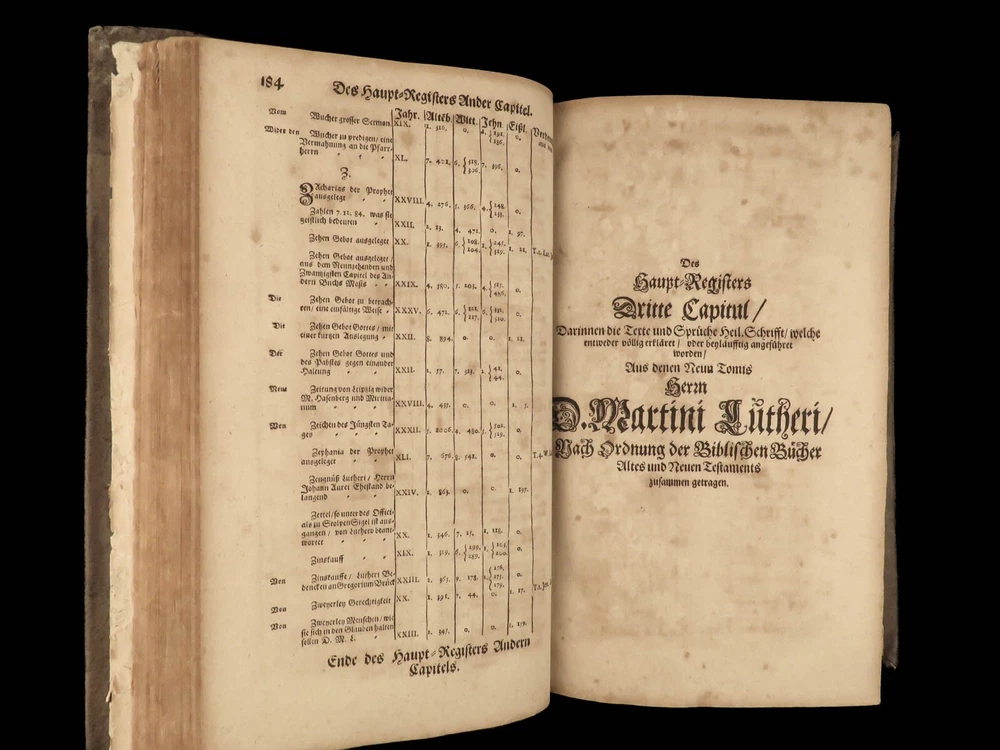 184
Des Haupt-Registers Ander Capitel.
Jahr. Altēb. Witt. Jehn Eißl.
Vom Wucher grosser Sermon XIX. 1. 316. 0. 0.
Wider den Wucher zu predigen/ eine
Vermahnung an die Pfarr-
herrn XL. 7. 401. 6. 7. 396. 0.
Z.
ZAcharias der Prophet
ausgelegt XXVIII. 4. 276. 5. 4. 0.
Zahlen 7. 12. 84. was sie
geistlich bedeuten XXII. 4. 471. 0. 1. 97.
Zehen Gebot ausgelegt XX. 6. 1.
Zehen Gebot ausgeleget/
aus dem Neunzehenden und
Zwantzigsten Capitel des An-
dern Buchs Mosis XXIX. 405. 0.
Die Zehen Gebot zu betrach-
ten/ eine einfältige Weise XXXV. 6. 472. 6. 0.
Die Zehen Gebot Gottes/ mit
einer kurtzen Auslegung XXII. 894. 0. 0.
Der Zehen Gebot Gottes und
des Pabstes gegen einander
Haltung XXII. 7. 0.
Neue Zeitung von Leipzig wider
M. Hasenberg und Miritia-
num XXVIII. 4. 0. 0. 1. 5.
Von Zeichen des Jüngsten Ta-
ges XXXII. 0.
Zephania der Prophet
ausgeleget XLI. 7. 0. 0.
Zeugnüß Lutheri/ Herrn
Johann Aurei Ehestand be-
langend XXIV. 0. 0.
Zettel/ so unter des Offici-
als zu Stolpen Sigel ist aus-
gangen/ von Luthero beant-
wortet XX. 1. 346. 7. 0.
Zinskauff XIX. 1. 6. 0.
Von Zinskauffe/ Lutheri Be-
dencken an Gregorium Brück XXIII. 178. 0.
Von Zweyerley Gerechtigkeit XX. 44. 1. 17.
Von Zweyerley Menschen/ wie
sie sich in den Glauben halten
sollen D. M. L. XXIII. 0. 0.
Ende des Haupt-Registers Andern
Capitels.
Des
Haupt-Registers
Dritte Capitul/
Darinnen die Texte und Sprüche Heil. Schrifft/ welche
entweder völlig erkläret/ oder beyläufftig angeführet
worden/
Aus denen Neun Tomis
Herrn
D. Martini Lutheri/
Nach Ordnung der Biblischen Bücher
Altes und Neuen Testaments
zusammen getragen.